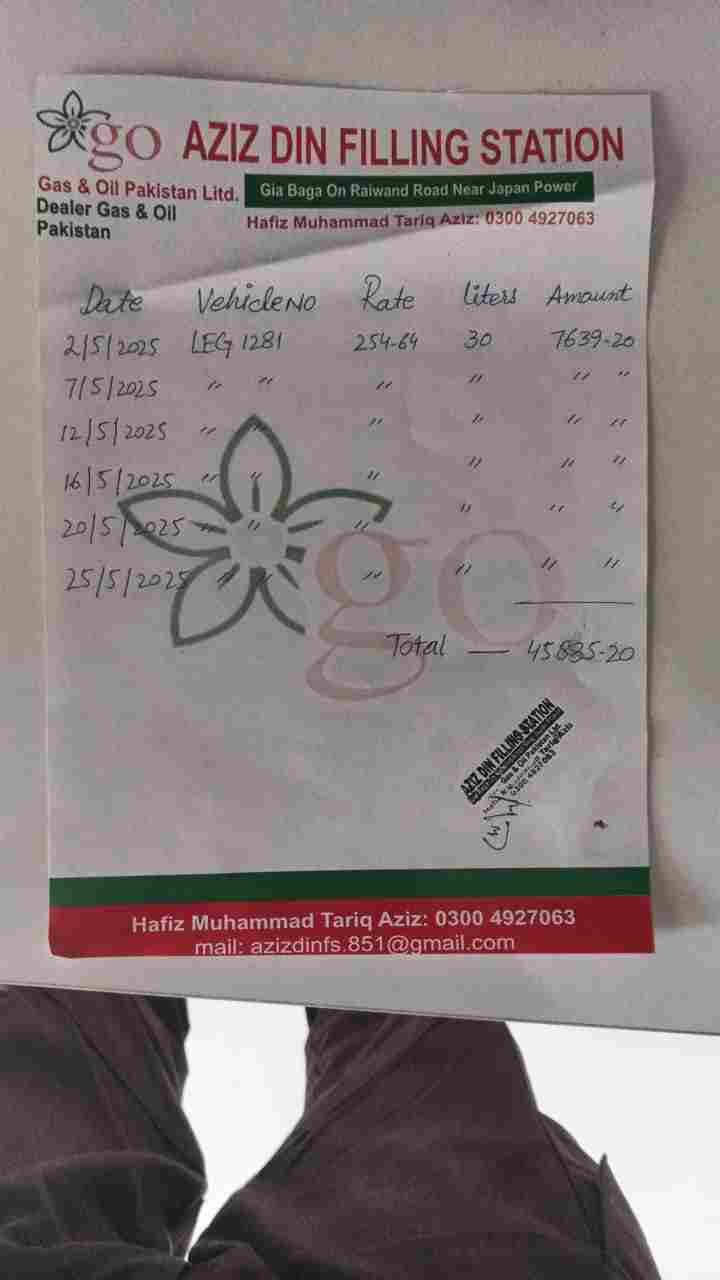 go AZIZ DIN FILLING STATION
Gas & Oil Pakistan Ltd.
Gia Baga On Raiwand Road Near Japan Power
Dealer Gas & Oil
Pakistan
Hafiz Muhammad Tariq Aziz: 0300 4927063
Date Vehicle No Rate liters Amount
2/5/2025 LEG 1281 254-64 30 7639-20
7/5/2025 〃 〃 〃 〃 〃 〃
12/5/2025 〃 〃 〃 〃 〃 〃
16/5/2025 〃 〃 〃 〃 〃 〃
20/5/2025 〃 〃 〃 〃 〃 〃
25/5/2025 〃 〃 〃 〃 〃 〃
go
Total — 45835-20
AZIZ DIN FILLING STATION
Gas & Oil Pakistan Ltd.
0300 4927063
Hafiz Muhammad Tariq Aziz: 0300 4927063
mail: azizdinfs.851@gmail.com